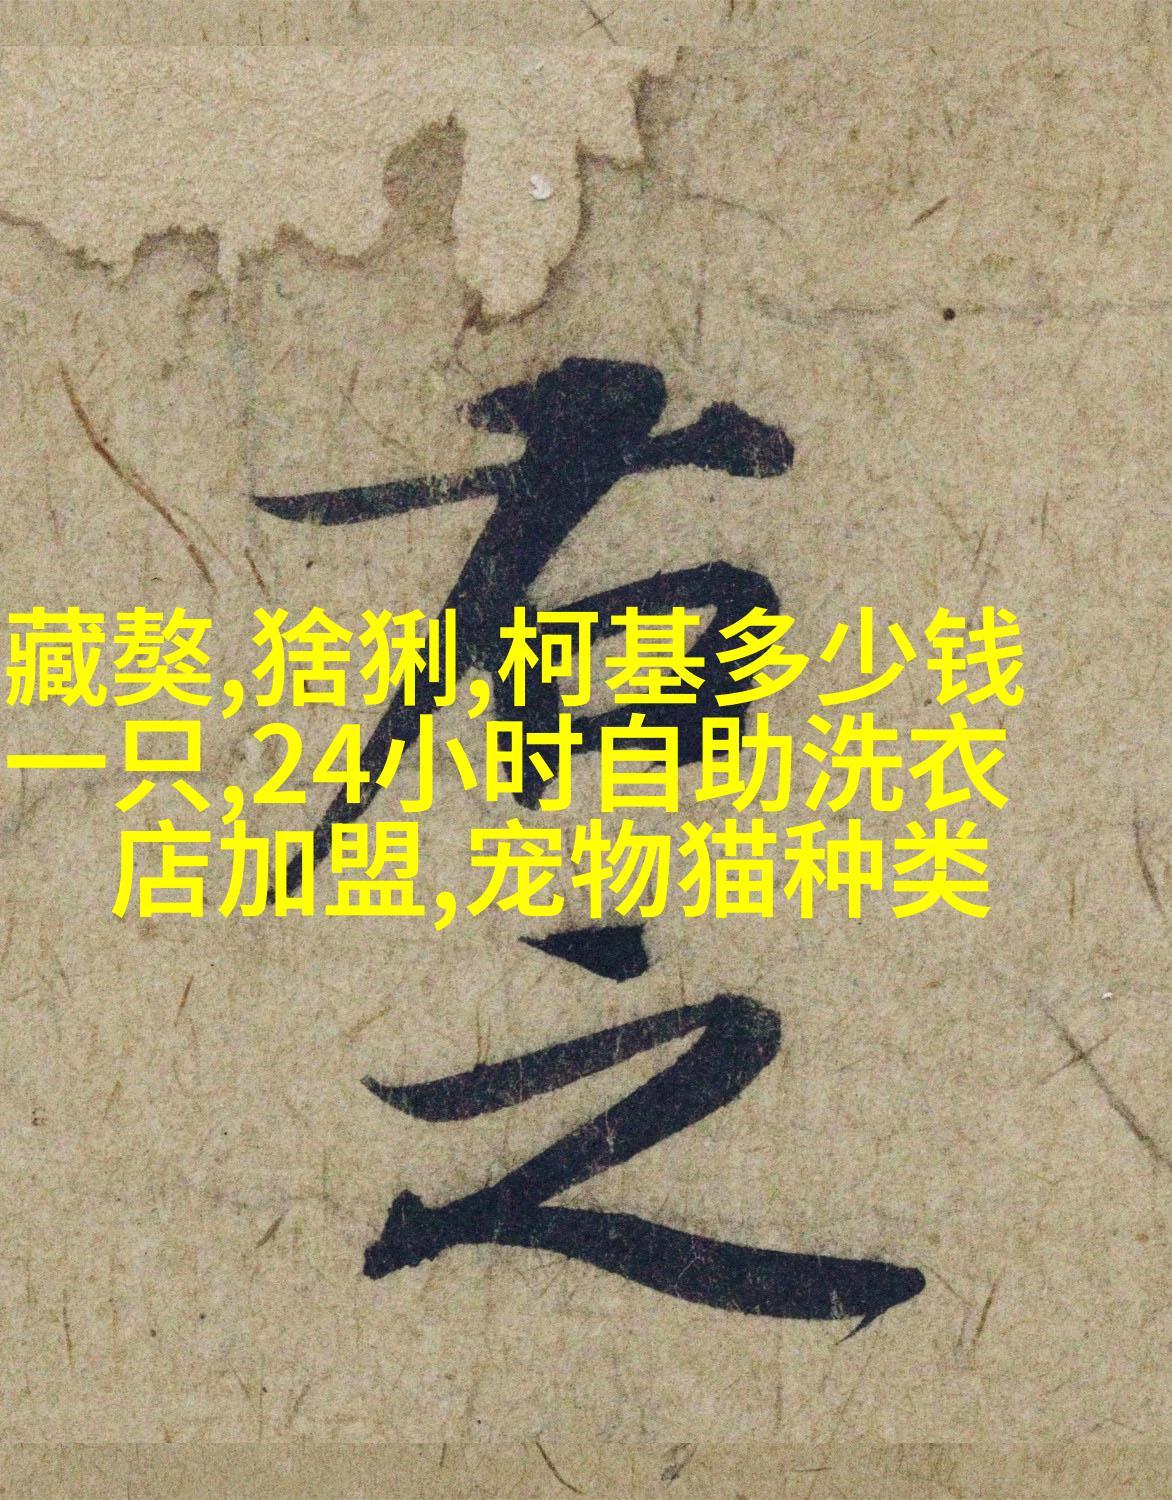 藏獒,猞猁,柯基多少钱
一只,24小时自助洗衣
店加盟,宠物猫种类
有之